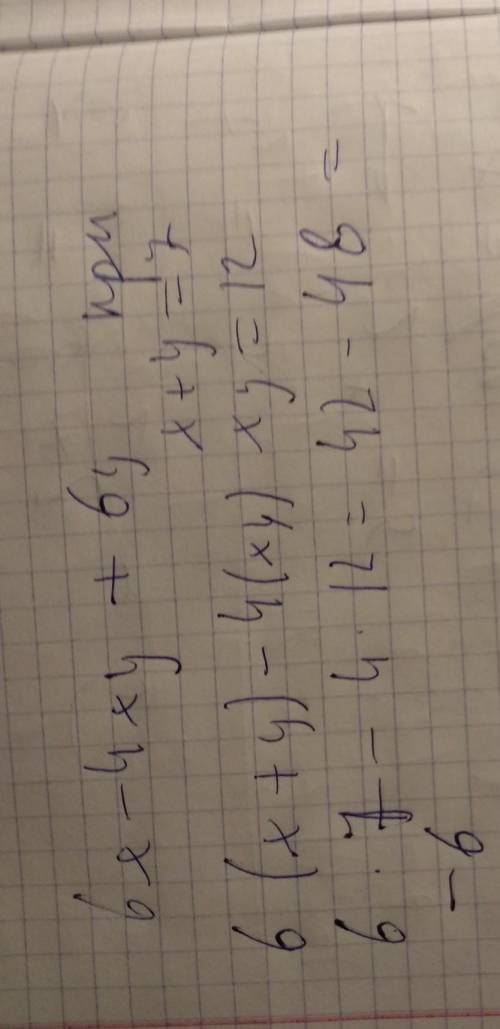 6x - 4xy + 6y при
x + y = 7
6 (x + y) - 4(xy) xy = 12
6 · 7 - 4 · 12 = 42 - 48 =
- 6